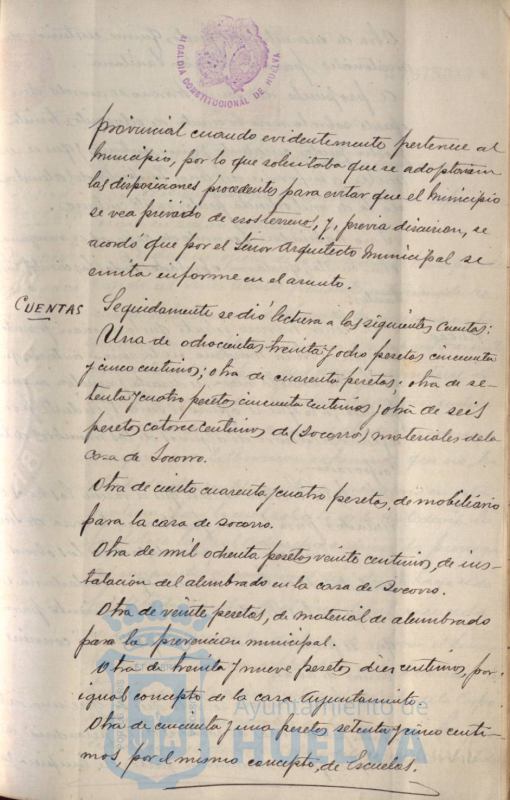 ALCALDIA CONSTITUCIONAL DE HUELVA
provincial cuando evidentemente pertenece al
Municipio, por lo que solicitaba que se adoptaran
las disposiciones procedentes para evitar que el Municipio
se vea privado de esos terrenos, y, previa discusion, se
acordó que por el Señor Arquitecto Municipal se
emita informe en el asunto.
CUENTAS
Seguidamente se dió lectura a las siguientes Cuentas:
Una de ochocientas treinta y ocho pesetas cincuenta
y cinco centimos; otra de cuarenta pesetas; otra de se-
tenta y cuatro pesetas cincuenta centimos y otra de seis
pesetas catorce centimos de (Socorro) materiales de la
Casa de Socorro.
Otra de ciento cuarenta y cuatro pesetas, de mobiliario
para la casa de socorro.
Otra de mil ochenta pesetas veinte centimos, de ins-
talacion del alumbrado en la casa de Socorro.
Otra de veinte pesetas, de material de alumbrado
para la prevencion municipal.
Otra de treinta y nueve pesetas diez centimos, por
igual concepto de la casa Ayuntamiento.
Otra de cincuenta y una pesetas setenta y cinco centi-
mos, por el mismo concepto, de Escuelas.
Ayuntamiento de
HUELVA